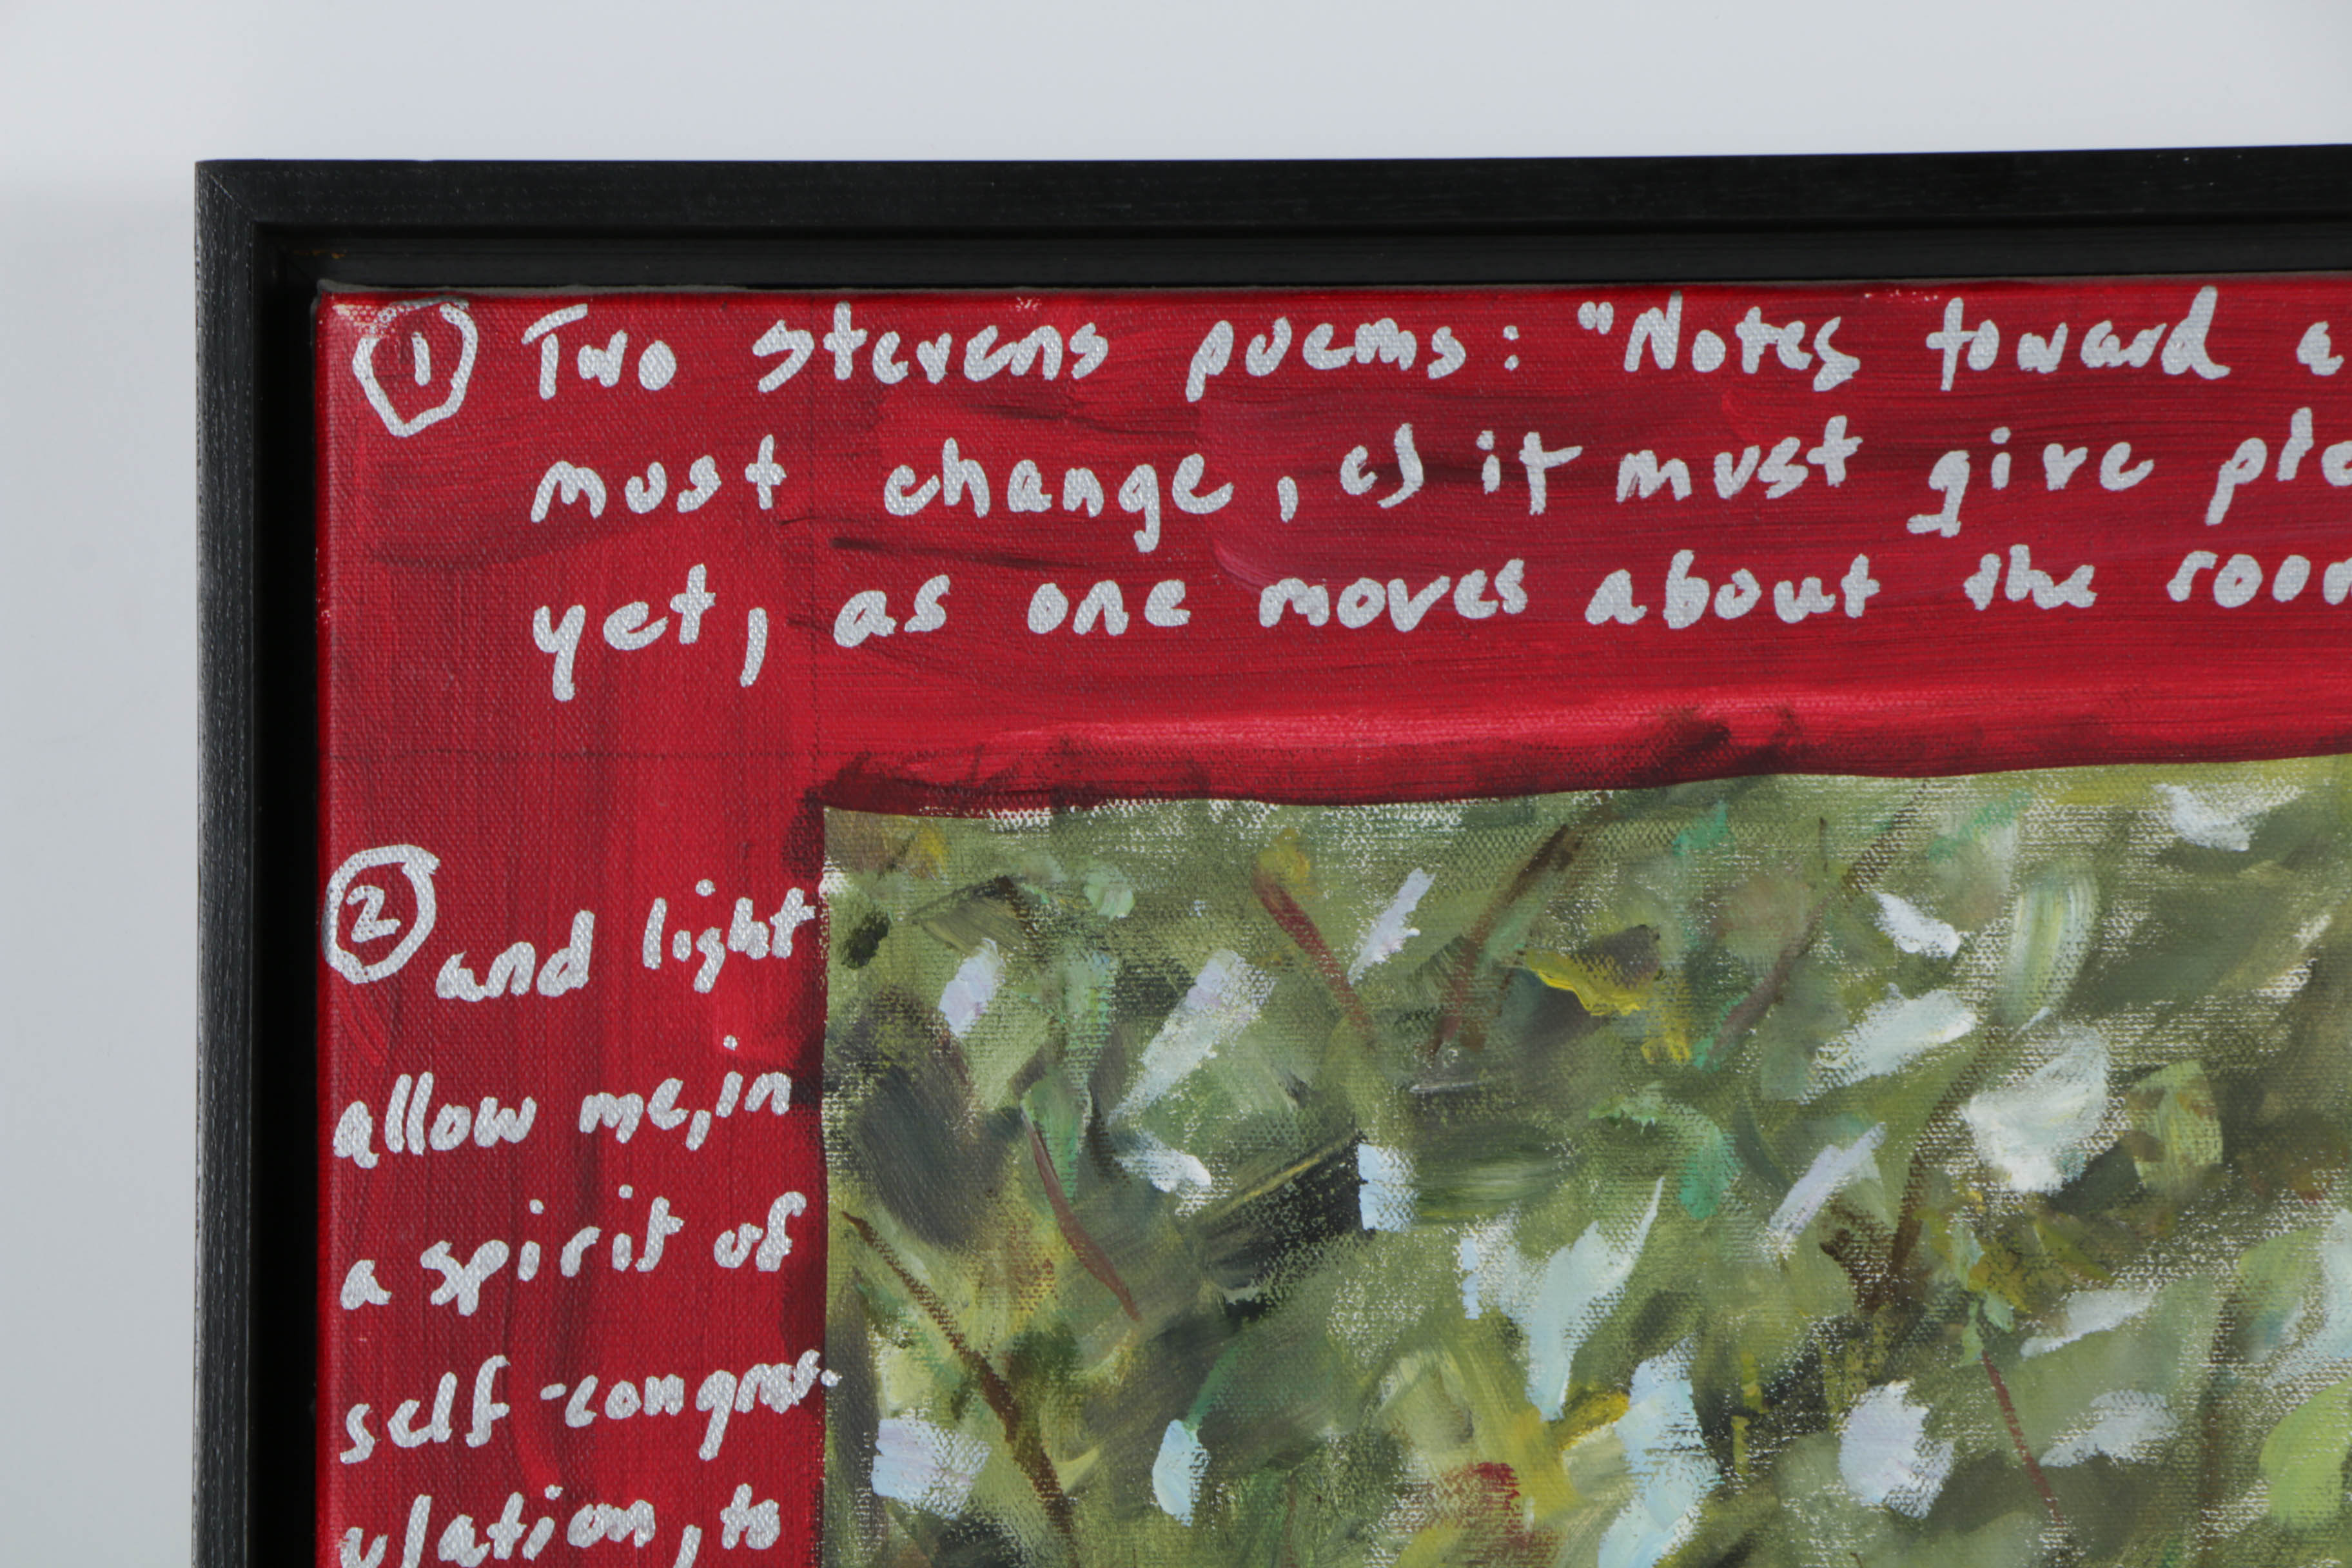 ① Two Stevens poems: "Notes toward a
must change, c) it must give ple
yet, as one moves about the room
② and light
allow me, in
a spirit of
self-congrat-
ulation, to